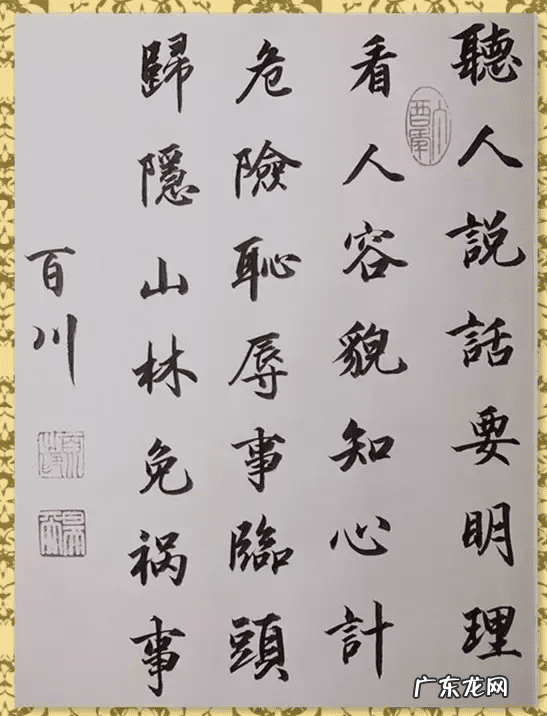 聽人説話要明理
看人容貌知心計
危險恥辱事臨頭
歸隱山林免祸事
百川
广东龙网